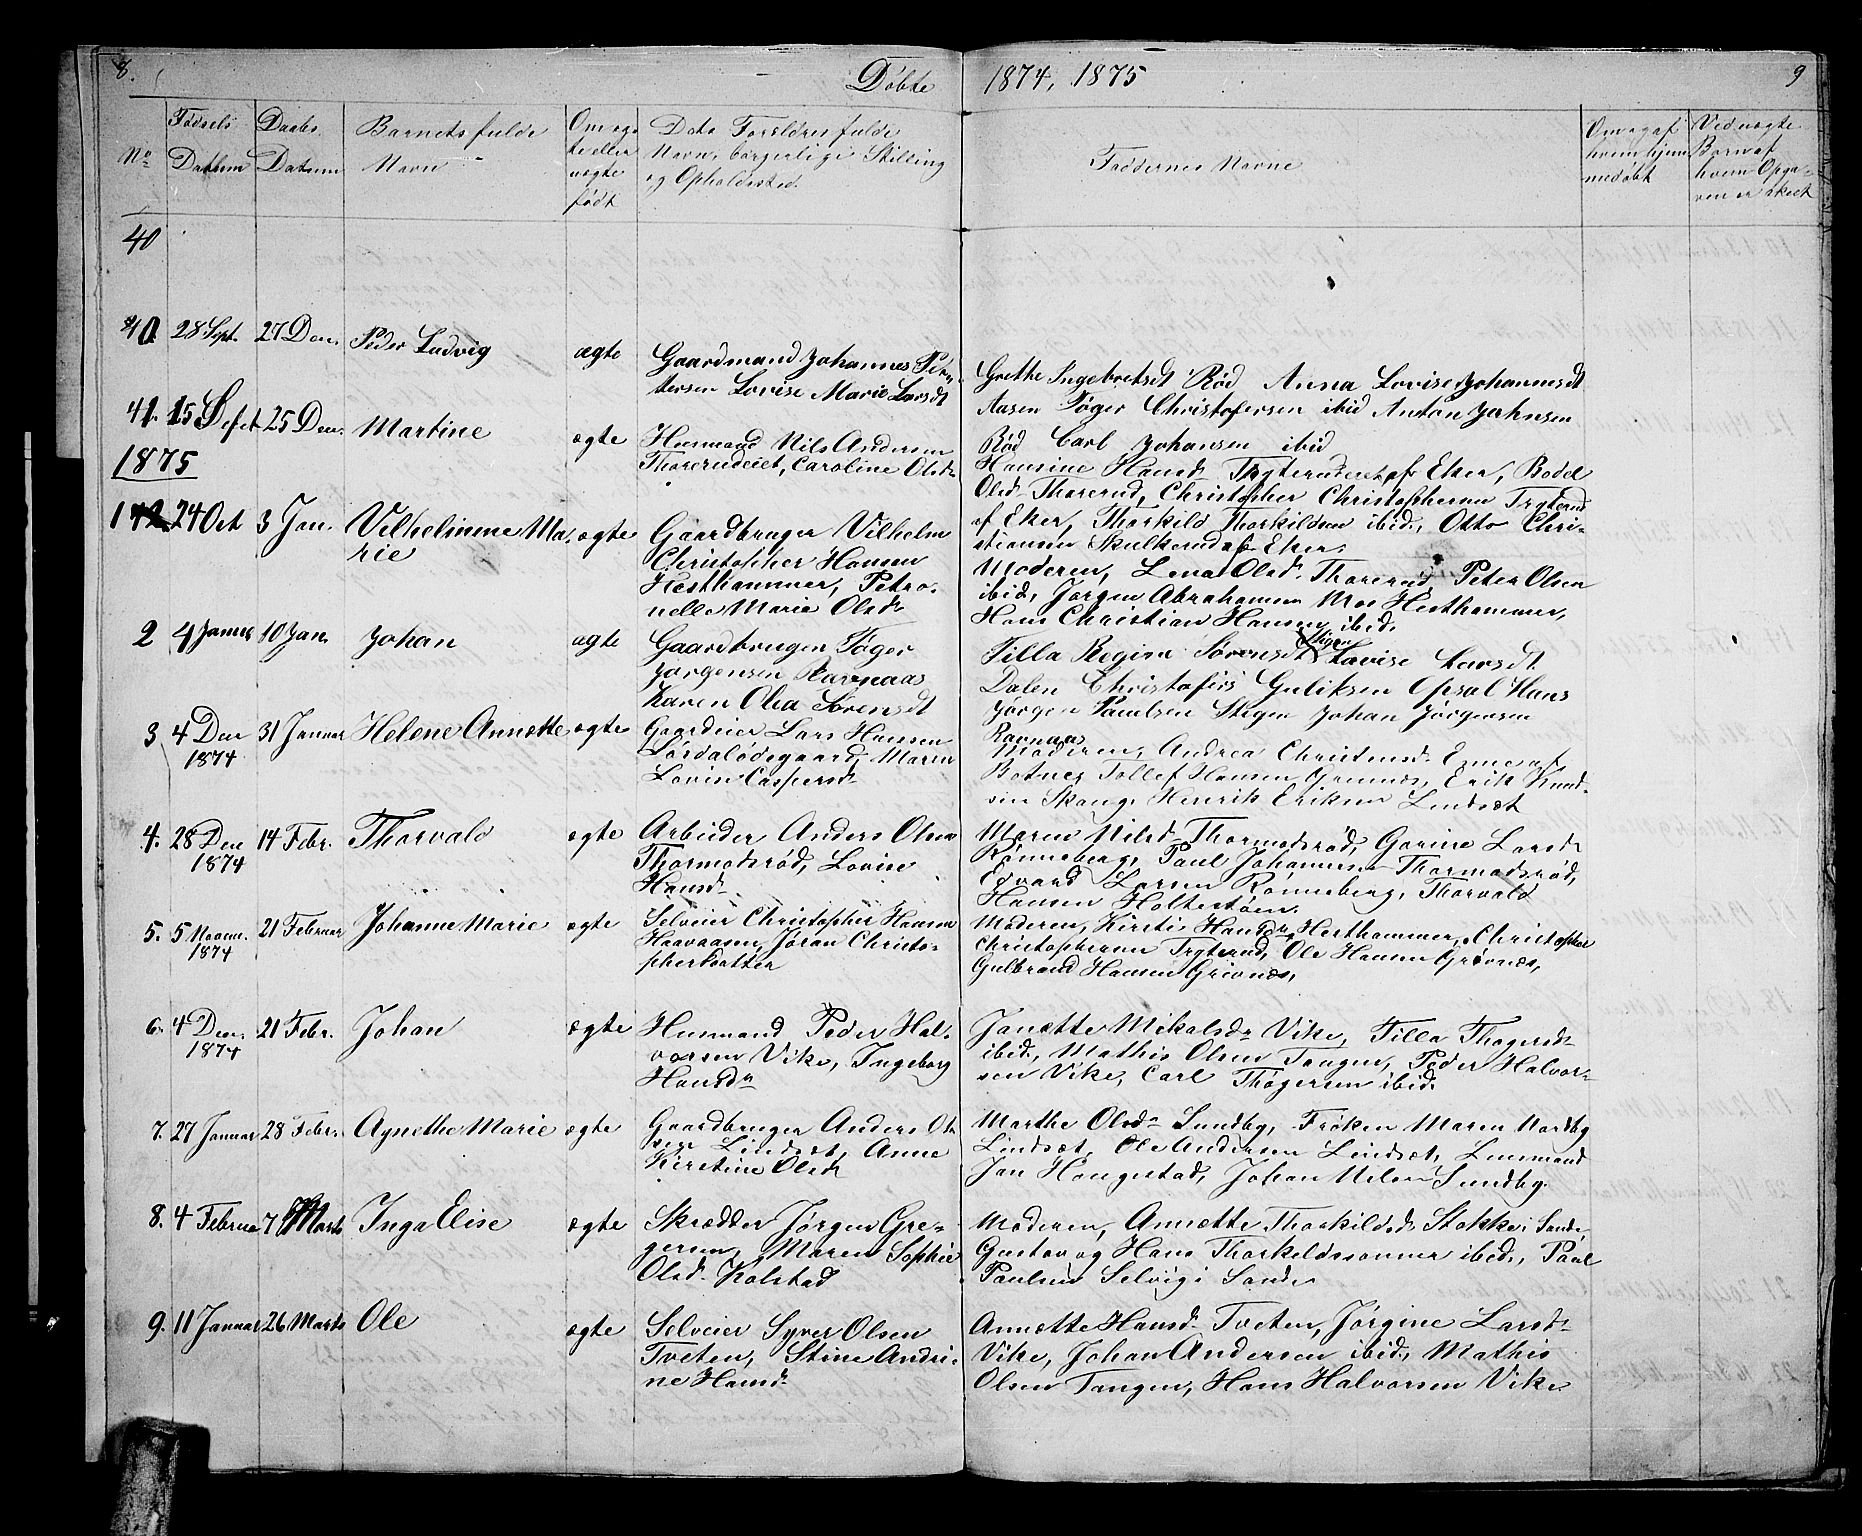 8.
Døbte
1874, 1875
9
No
Fødsels
Datum
Daabs
Datum
Barnets fulde
Navn
Om æg
te eller
uægte
født
Dets Forældres fulde
Navn, borgerlige Stilling
og Opholdssted.
Faddernes Navne
Om og af
hvem hjem
medøbt
Ved uægte
Børn af
hvem Opga-
ven er skeet
40
40. 28 Sept. 27 Dec. Peder Ludvig ægte
Gaardmand Johannes Pet-
tersen Lovise Marie Larsdt
Grethe Ingebretsdt Rød Anna Lovise Johannesdt
Aasen Tøger Christofersen ibid Anton Jahnsen
Rød Carl Johansen ibid
41. 15 Sept. 25 Dec. Martine ægte
Husmand Nils Andersen
Thorerudeiet, Caroline Olsdr
Hansine Hansdr Trgterudeiet af Eker, Bodel
Olsdr Thorerud, Christopher Christophersen Trgterud
af Eker, Thorkild Thorkildsen ibid, Otto Chri-
stiansen Skulkerud af Eker.
1875
1 24 Oct 3 Jan. Vilhelmine Ma-
rie
ægte
Gaardbruger Vilhelm
Christopher Hansen
Hesthammer, Petro-
nelle Marie Olsdr
Moderen, Lena Olsdr Thorerud Peter Olsen
ibid, Jørgen Abrahamsen Moe Hesthammer,
Hans Christian Hansen ibid.
2 4 Januar 10 Jan. Johan ægte
Gaardbruger Tøger
Jørgensen Ravnaas
Karen Olea Sørensdt
Tilla Regine Sørensdt Stigen Lovise Larsdt
Dalen Christofers Guliksen Opsal Hans
Jørgen Paulsen Stigen Johan Jørgensen
Ravnaas
3 4 Dec
1874
31 Januar Helene Annette ægte
Gaardeier Lars Hansen
Sørdalødegaard, Maren
Lovise Caspersdr
Moderen, Andrea Christensdr Enne af
Botne, Tollef Hansen Grimnes, Erik Knud-
sen Skaug, Henrik Eriksen Lindsæt
4. 28 Dec
1874
14 Febr. Thorvald ægte
Arbeider Anders Olsen
Thormodsrød, Lovise
Hansdr
Maren Nilsdr Thormodsrød, Gorine Larsdr
Rønneberg, Paul Johannesen Thormodsrød,
Edvard Larsen Rønneberg, Thorvald
Hansen Holtestøen.
5. 5 Novem.
1874
21 Februar Johanne Marie ægte
Selveier Christopher Hansen
Haavaasen, Jøran Christo-
phersdatter
Moderen, Kirsti Hansdr Hesthammer, Christopher
Christophersen Trgterud, Ole Hansen Grivnæs,
Gulbrand Hansen Grivnæs,
6. 4 Dec.
1874
21 Febr. Johan ægte
Husmand Peder Hal-
vorsen Vike, Ingeborg
Hansdr
Janette Mikalsdr Vike, Tilla Thøgersdr
ibid, Mathis Olsen Tangen, Peder Halvor-
sen Vike, Carl Thøgersen ibid.
7. 27 Januar 28 Febr. Agnethe Marie ægte
Gaardbruger Anders Ol-
sen Lindsæt, Anne
Kirstine Olsdr
Marthe Olsdr Sundby, Frøken Maren Nordby
Lindsæt, Ole Andersen Lindsæt, Lensmand
Jan Haugestad, Johan Nilsen Sundby.
8. 4 Februar 7 Marts Inga Elise ægte
Skrædder Jørgen Gre-
gersen, Maren Sophie
Olsdr Kolstad
Moderen, Annette Thorkildsdr Stokke i Sande,
Gustav og Hans Thorkeldssønner ibid., Paul
Paulsen Selvig i Sande
9. 11 Januar 26 Marts Ole ægte
Selveier Syver Olsen
Tveten, Stine Andri-
ne Hansdr
Annette Hansdr Tveten, Jørgine Larsdr
Vike, Johan Andersen ibid, Mathis
Olsen Tangen, Hans Halvorsen Vike